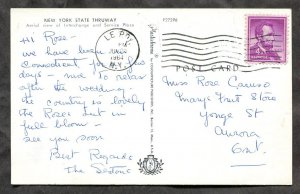 NEW YORK STATE THRUWAY
Aerial view of Interchange and Service Plaza
P27296
LE RO
PM
1961
N.Y.
POST CARD
Hi Rose -
we have been
Connecticut for a few
days - and to relax
after the wedding.
the country is lovely
the Roses out in
full bloom -
see you soon
Best Regards
The
Miss Rose Caruso
Mary's Fruit Store
Yonge St
Aurora
Ont.